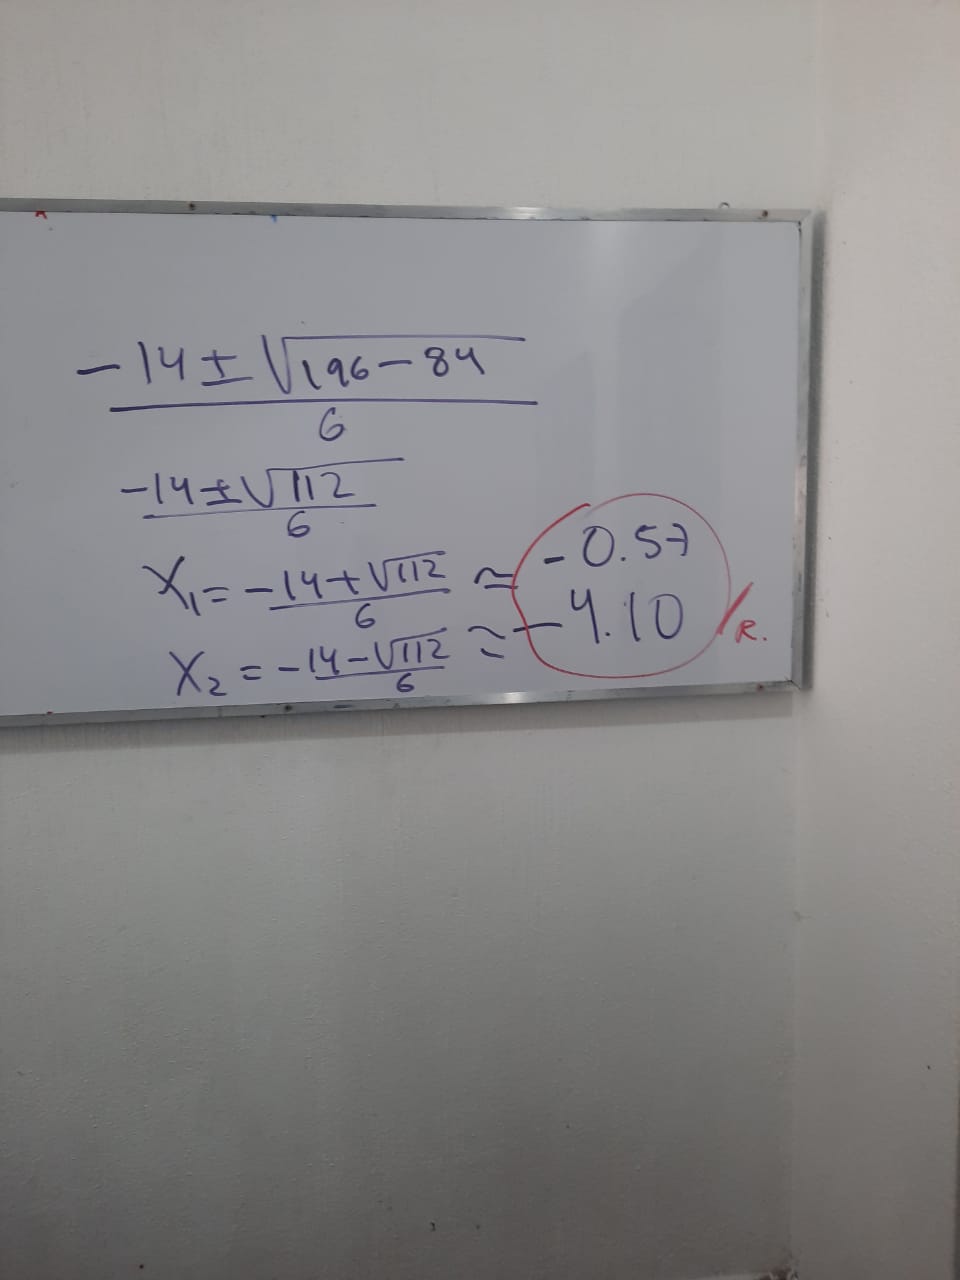 -14 ± √196-84
6
-14±√112
6
X₁= -14+√112 ≃ -0.57
6
X₂ = -14-√112 ≃ -4.10 /R.
6